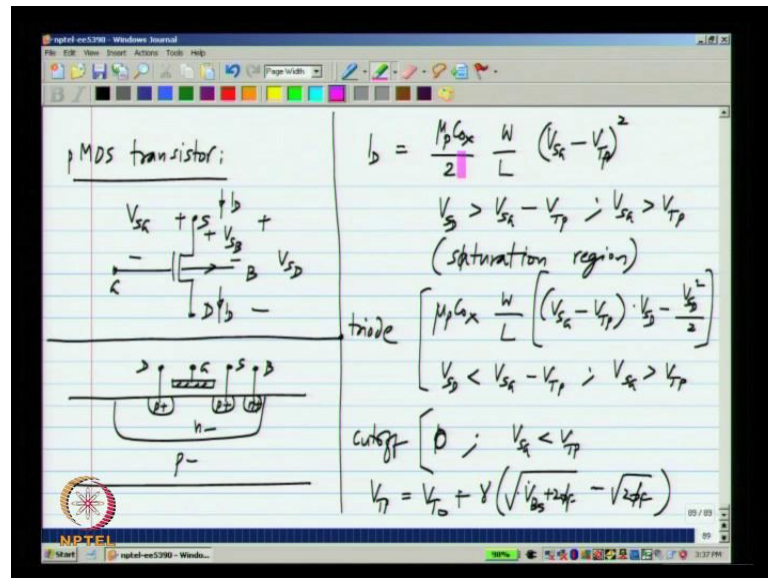 nptel-ee5390 - Windows Journal
File Edit View Insert Actions Tools Help
Page Width
B I
pMOS transistor:
V_SG + S ↓ I_D +
+ V_SB
G - - B V_SD
D ↓ I_D -
D G S B
p+ p+ n+
n-
p-
I_D = μ_p C_ox / 2 W / L (V_SG - V_Tp)^2
V_SD > V_SG - V_Tp ; V_SG > V_Tp
(saturation region)
triode [ μ_p C_ox W / L [ (V_SG - V_Tp) · V_SD - V_SD^2 / 2 ]
V_SD < V_SG - V_Tp ; V_SG > V_Tp
cutoff [ 0 ; V_SG < V_Tp
V_Tp = V_T0 + γ ( √(V_BS + 2φ_F) - √(2φ_F) )
NPTEL
89 / 89
89
Start nptel-ee5390 - Windo... 98% 3:37 PM